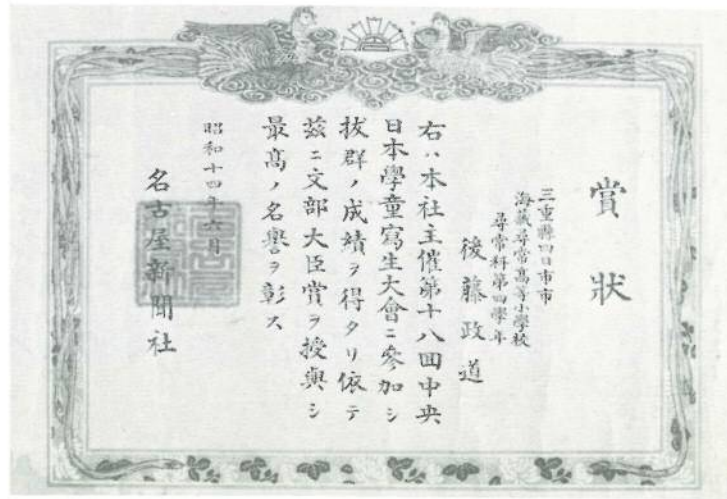 賞狀
三重縣四日市市
海藏尋常高等小學校
尋常科第四學年
後藤政道
右ハ本社主催第十八回中央
日本學童寫生大會ニ參加シ
拔群ノ成績ヲ得タリ依テ
玆ニ文部大臣賞ヲ授與シ
最高ノ名譽ヲ彰ス
昭和十四年六月
名古屋新聞社